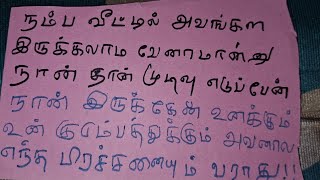 நம்ப வீட்டில் அவங்கள
இருக்கலாம வேணாமான்னு
நான் தான் முடிவு எடுப்பேன்
நான் இருக்கேன் உனக்கும்
உன் குடும்பத்துக்கும் அவனால
எந்த பிரச்சனையும் வராது!!